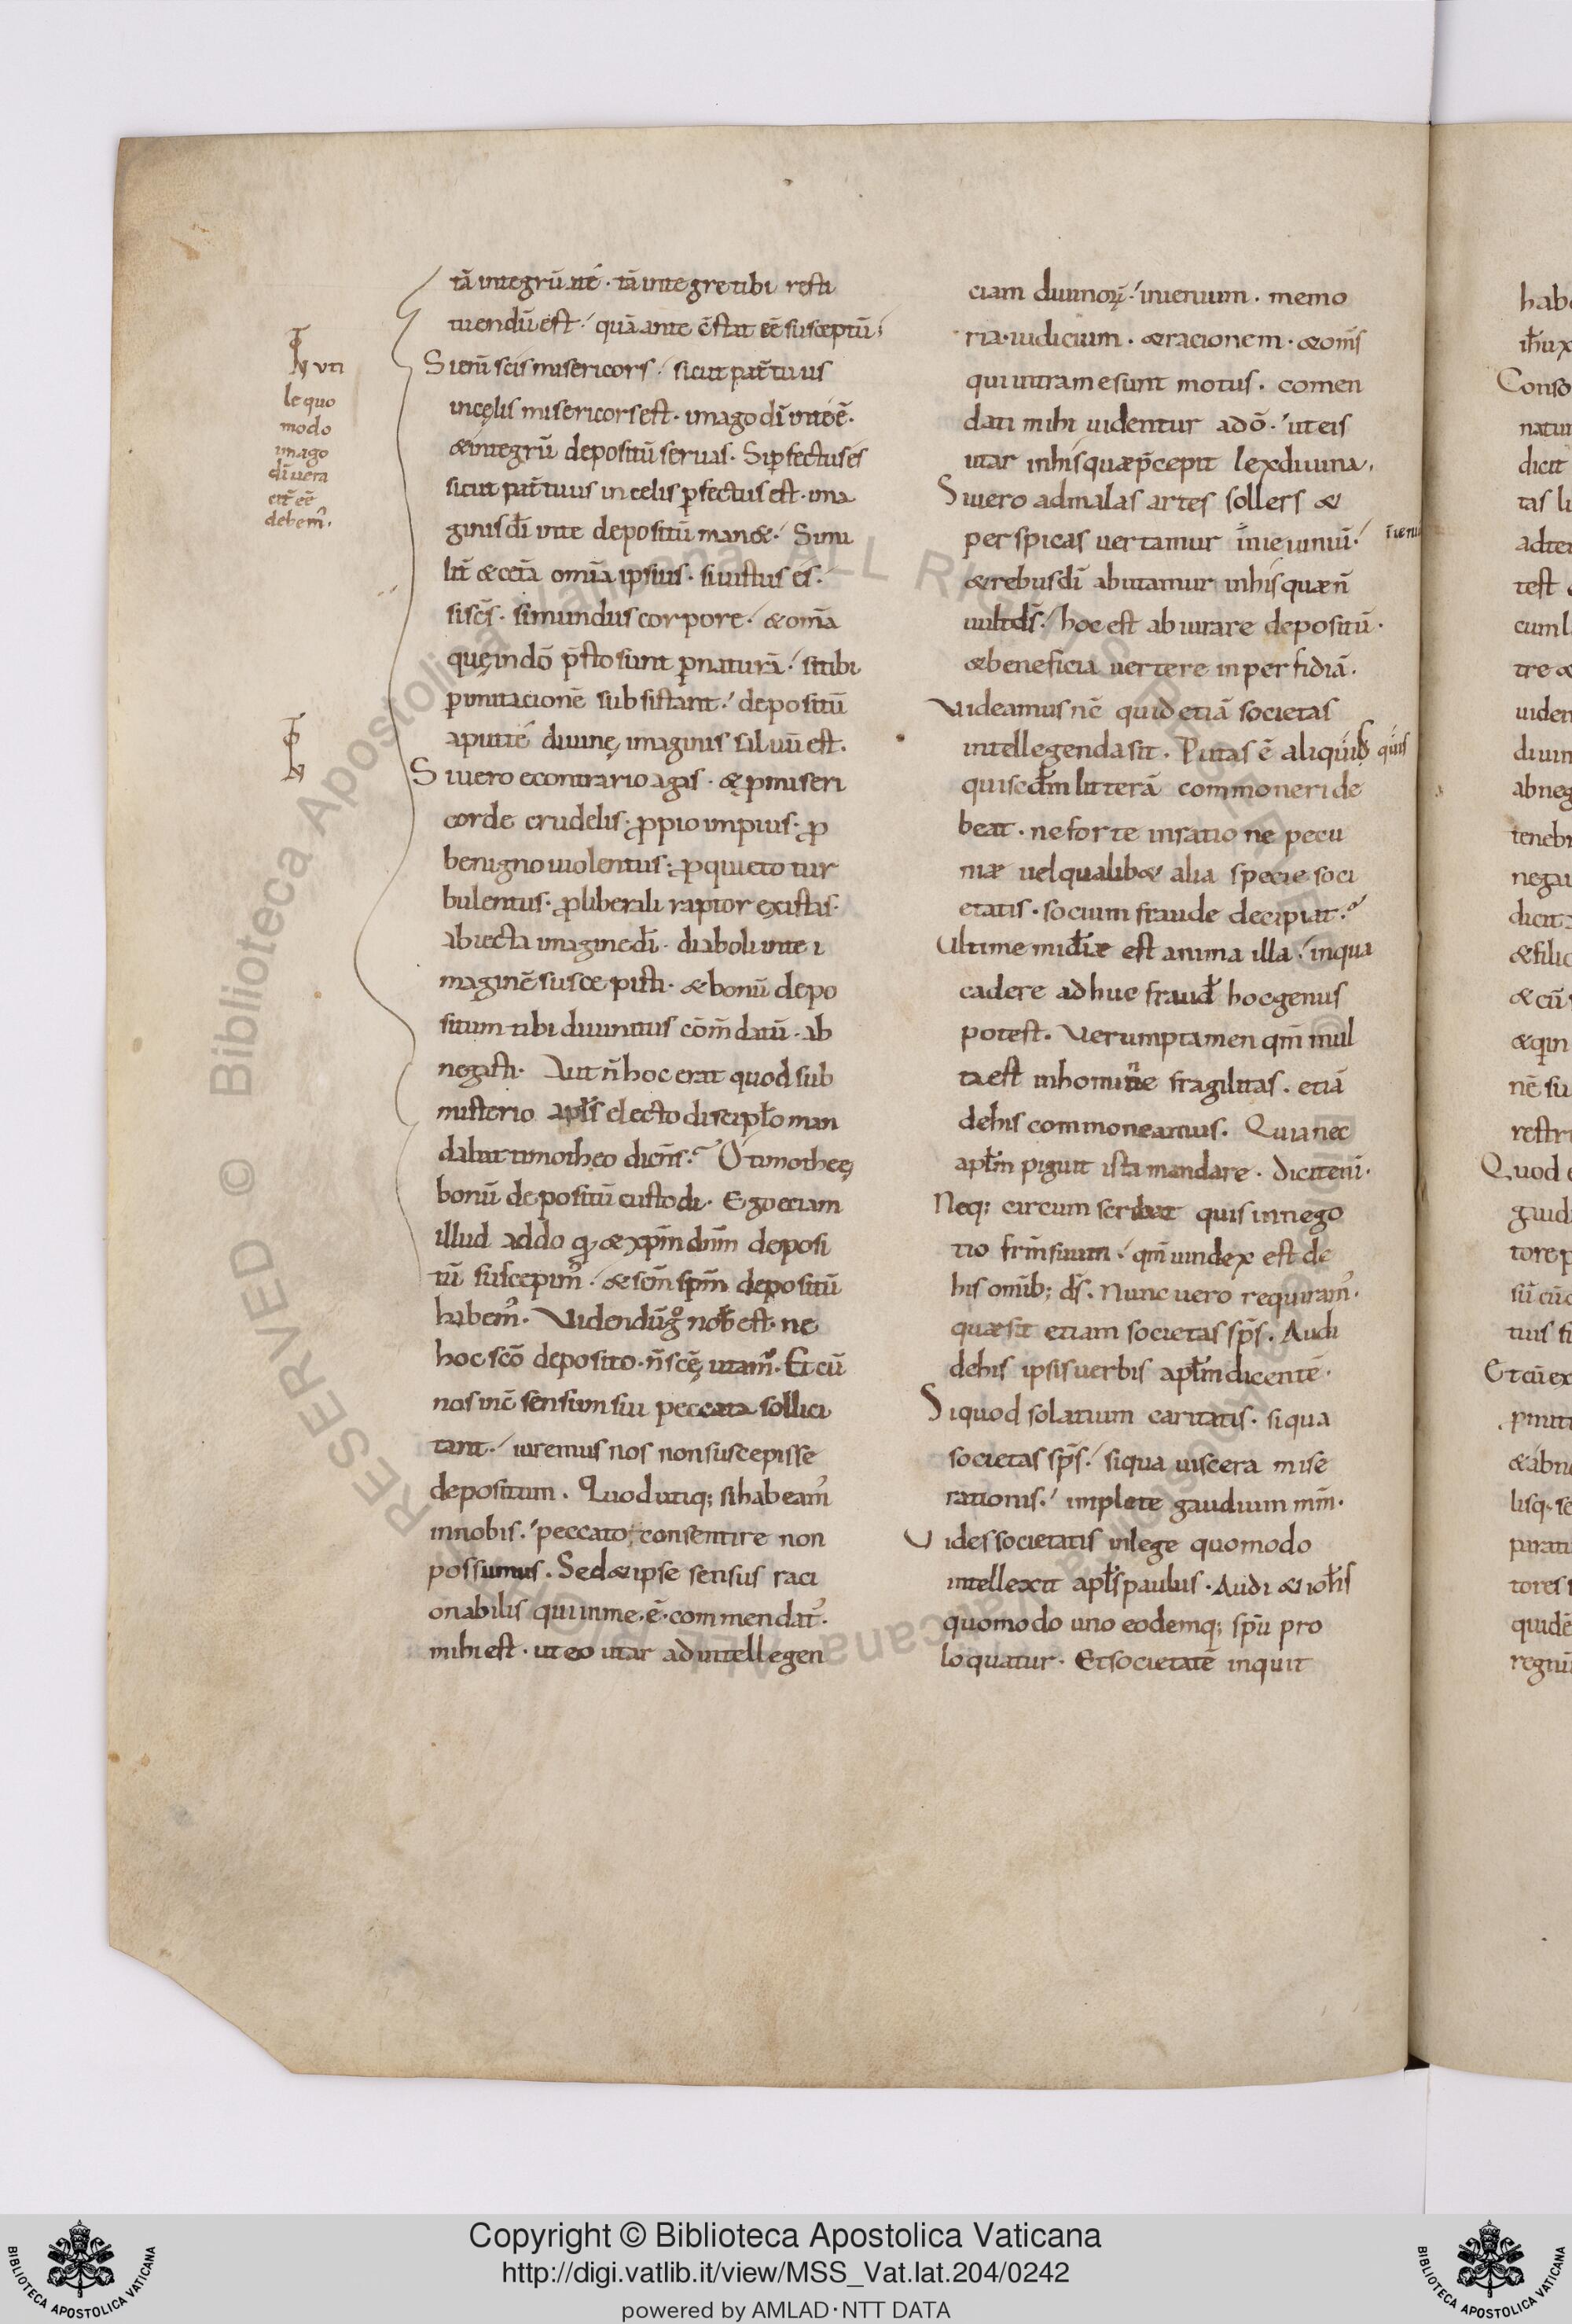 tā integrū. in te · tā integre tibi resti
tuendū est· quā a te c̄stat eē susceptū;
Si eni scis misericors· sicut pat̄ tuus
in cęlis misericors est · imago dī in te ē·
& integrū depositū seruas. Si p̄fectus es
sicut pat̄ tuus in celis p̄fectus est · ima
ginis dī in te depositū man&· Simi
lit̄ & cet̄a omīa ipsius · si iustus es·
si sc̄s · si mundus corpore· & om̄a
quę in dō p̄sto sunt p naturā· si tibi
p imitacionē subsistant· depositū
aput te diuinę imaginis saluū est.
Si uero econtrario agas · & p miseri
corde crudelis· pro pio impius· pro
benigno uiolentus· pro quieto tur
bulentus· pro liberali raptor existas·
abiecta imagine dī · diaboli in te i
maginē suscepisti · & bonū depo
situm tibi diuinitus cōm̄datū · ab
negasti · Aut n̄ hoc erat quod sub
misterio apl̄s electo discipl̄o man
dabat timotheo dicn̄s· O timotheę
bonū depositū custodi · Ego eciam
illud addo qđ & xp̄m dn̄m deposi
tū suscepim᾽· & sc̄m sp̄m depositū
habem᾽. Videndū g° nob̄ est · ne
hoc scō deposito · n̄ scę̄ utam᾽. Et cū
nos inc̄ sensum sui peccata sollici
tant· iuremus nos non suscepisse
depositum . Quod utiq; si habeam᾽
in nobis· peccato consentire non
possumus . Sed & ipse sensus raci
onabilis qui in me · ē · commendat᾽·
mihi est · ut eo utar ad intellegen
ciam diuinoꝝ· ingenium . memo
ria· iudicium · & racionem · & om̄s
qui intra me sunt motus . comen
dati mihi uidentur a dō· ut eis
utar in his quæ p̄cepit lex diuina.
Si uero ad malas artes sollers &
perspicas uertamur ingenium·
& rebus dī abutamur in his quæ n̄
uult ds̄· hoc est abiurare depositū·
& beneficia uertere in perfidiā.
Videamus nc̄ quid etiā societas
intellegenda sit . Putas ē aliquis
qui scđm litterā commoneri de
beat · ne forte in ratione pecu
niæ uel qualib& alia specie soci
etatis · socium fraude decipiat·
Ultime miđiæ est anima illa· in qua
cadere adhuc fraud̄ hoc genus
potest . Verumptamen qm̄ mul
ta est in homine fragilitas . etiā
de his commoneamus. Quia nec
apl̄m piguit ista mandare . dicit eni·
Neq; circumscribat quis in nego
tio frm̄ suum· qm̄ uindex est de
his omīb; ds̄. Nunc uero requiram᾽·
quæ sit etiam societas sp̄s. Audi
de his ipsis uerbis apl̄m dicentē·
Si quod solatium caritatis · si qua
societas sp̄s· si qua uiscera mise
rationis· implete gaudium mm̄·
Vides societatis in lege quomodo
intellexit apl̄s paulus · Audi & ioh̄is
quomodo uno eodemq; sp̄u pro
loquatur · Et societatē inquit
uti
le quo
modo
imago
dī uera
cit̄ eē
debem᾽.
quis
Copyright © Biblioteca Apostolica Vaticana
http://digi.vatlib.it/view/MSS_Vat.lat.204/0242
powered by AMLAD·NTT DATA
BIBLIOTECA APOSTOLICA VATICANA
BIBLIOTECA APOSTOLICA VATICANA